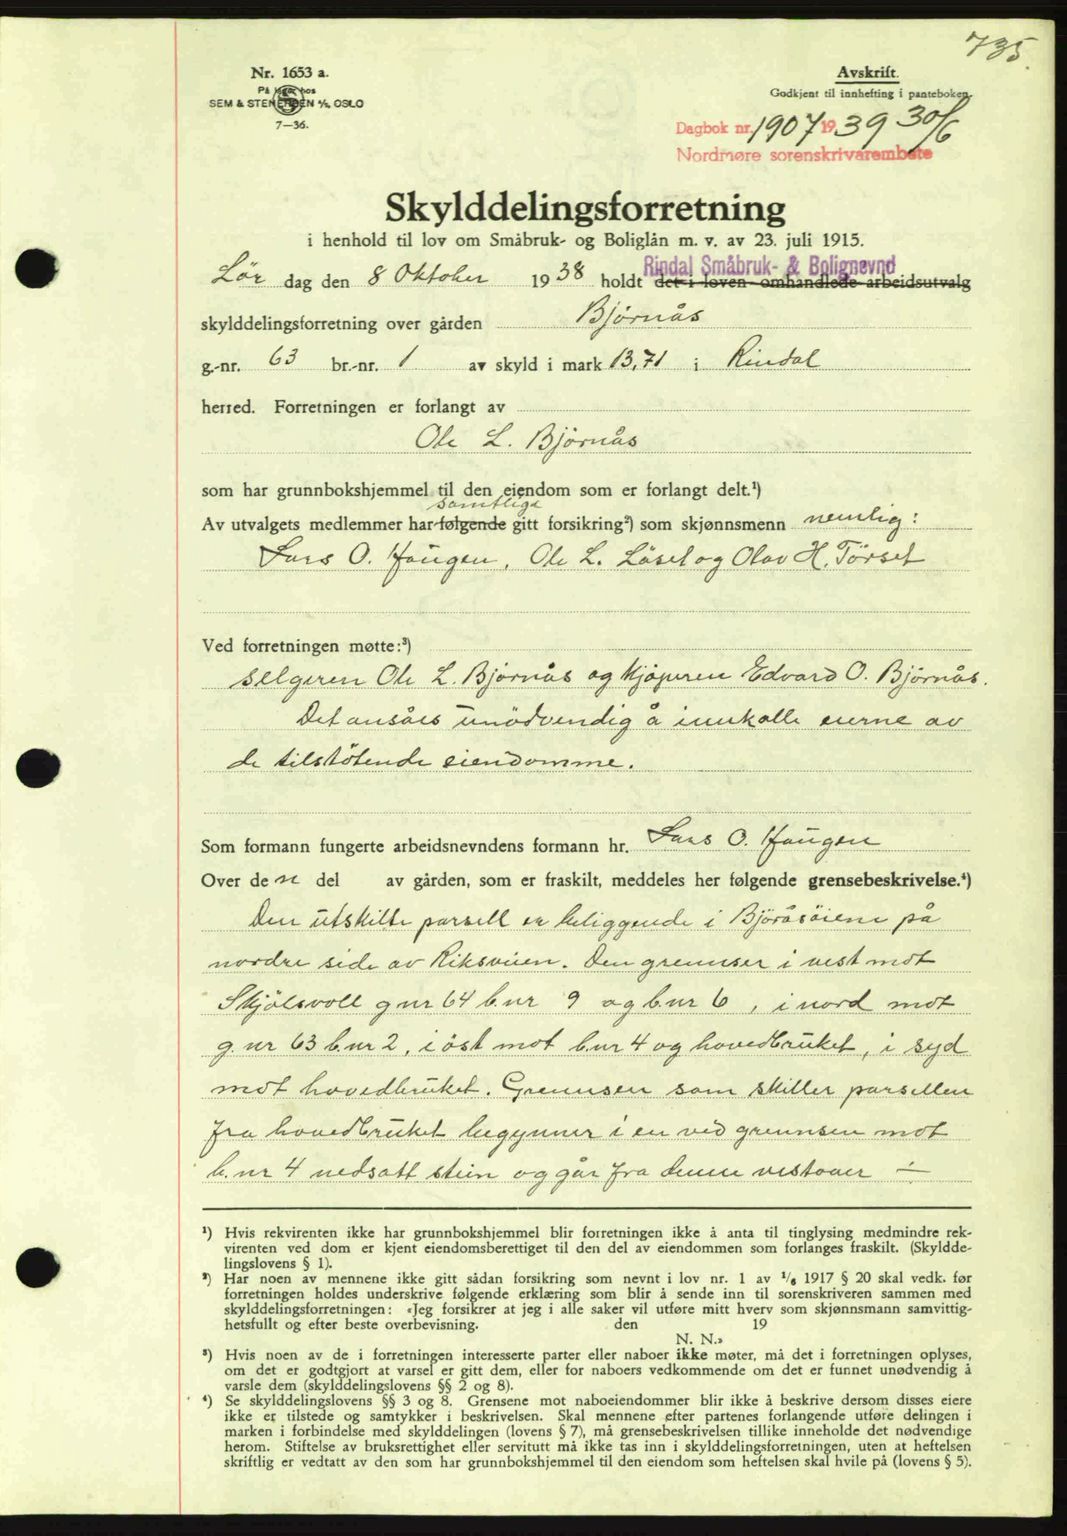 735.
Nr. 1653 a.
På lager hos
SEM & STENERSEN A/S, OSLO
7—36.
Avskrift.
Godkjent til innhefting i panteboken.
Dagbok nr. 1907 1939 30/6
Nordmøre sorenskrivarembete
Skylddelingsforretning
i henhold til lov om Småbruk- og Boliglån m. v. av 23. juli 1915.
Rindal Småbruk- & Bolignevnd
Lör dag den 8 Oktober 1938 holdt det i loven omhandlede arbeidsutvalg
skylddelingsforretning over gården Bjørnås
g.-nr. 63 br.-nr. 1 av skyld i mark 13,71 i Rindal
herred. Forretningen er forlangt av
Ole L. Björnås
som har grunnbokshjemmel til den eiendom som er forlangt delt.¹)
samtlige
Av utvalgets medlemmer har følgende gitt forsikring²) som skjønnsmenn nemlig:
Lars O. Haugen, Ole L. Löset og Olav H. Törset
Ved forretningen møtte:³)
selgeren Ole L. Bjørnås og kjøperen Edvard O. Bjørnås.
Det ansåes unödvendig å innkalle eierne av
de tilstötende eiendomme.
Som formann fungerte arbeidsnevndens formann hr. Lars O. Haugen
Over den del av gården, som er fraskilt, meddeles her følgende grensebeskrivelse.⁴)
Den utskilte parsell er beliggende i Björåsöiene på
nordre side av Riksveien. Den grennser i vest mot
Skjölsvoll g nr 64 b.nr 9 og b.nr 6, i nord mot
g. nr 63 b.nr 2, i öst mot b.nr 4 og hovedbruket, i syd
mot hovedbruket. Grennsen som skiller parsellen
fra hovedbruket begynner i en ved grennsen mot
b.nr 4 nedsatt stein og går fra denne vestover ÷
¹) Hvis rekvirenten ikke har grunnbokshjemmel blir forretningen ikke å anta til tinglysing medmindre rek-
virenten ved dom er kjent eiendomsberettiget til den del av eiendommen som forlanges fraskilt. (Skyldde-
lingslovens § 1).
²) Har noen av mennene ikke gitt sådan forsikring som nevnt i lov nr. 1 av 1/6 1917 § 20 skal vedk. før
forretningen holdes underskrive følgende erklæring som blir å sende inn til sorenskriveren sammen med
skylddelingsforretningen: «Jeg forsikrer at jeg i alle saker vil utføre mitt hverv som skjønnsmann samvittig-
hetsfullt og efter beste overbevisning. den 19
N. N.»
³) Hvis noen av de i forretningen interesserte parter eller naboer ikke møter, må det i forretningen oplyses,
om det er godtgjort at varsel er gitt dem, eller for naboers vedkommende om det er funnet unødvendig å
varsle dem (skylddelingslovens §§ 2 og 8).
⁴) Se skylddelingslovens §§ 3 og 8. Grensene mot naboeiendommer blir ikke å beskrive dersom disses eiere
ikke er tilstede og samtykker i beskrivelsen. Skal mennene efter partenes forlangende utføre delingen i
marken i forbindelse med skylddelingen (lovens § 7), må grensebeskrivelsen tillike inneholde det nødvendige
herom. Stiftelse av bruksrettighet eller servitutt må ikke tas inn i skylddelingsforretningen, uten at heftelsen
skriftlig er vedtatt av den som har grunnbokshjemmel til den eiendom som heftelsen skal hvile på (lovens § 5).